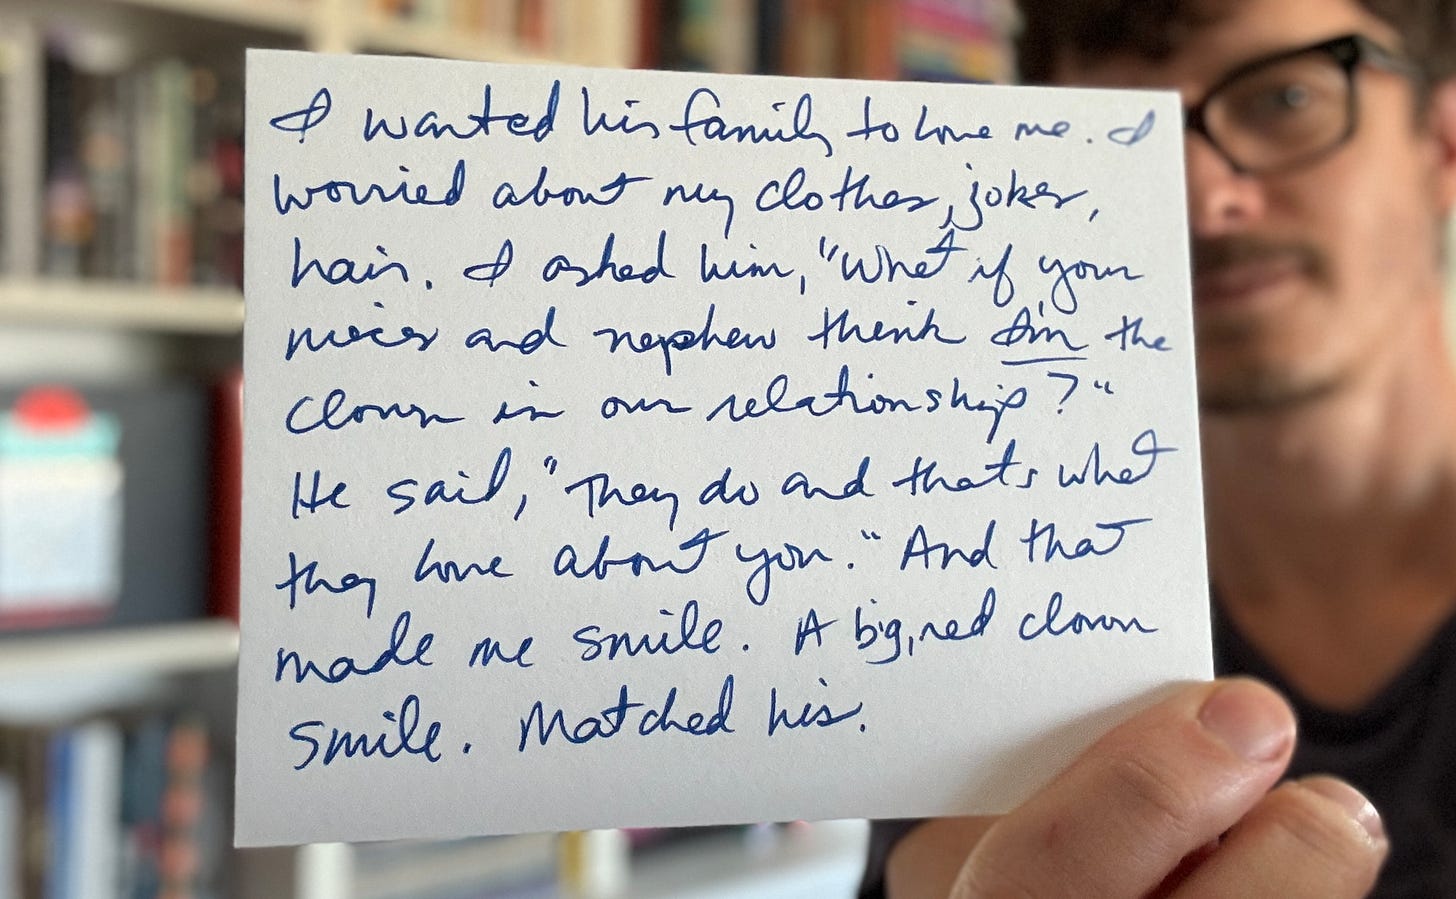 I wanted his family to love me. I
worried about my clothes, jokes,
hair. I asked him, "What if your
nieces and nephew think I'm the
clown in our relationship?"
He said, "They do and that's what
they love about you." And that
made me smile. A big, red clown
smile. Matched his.